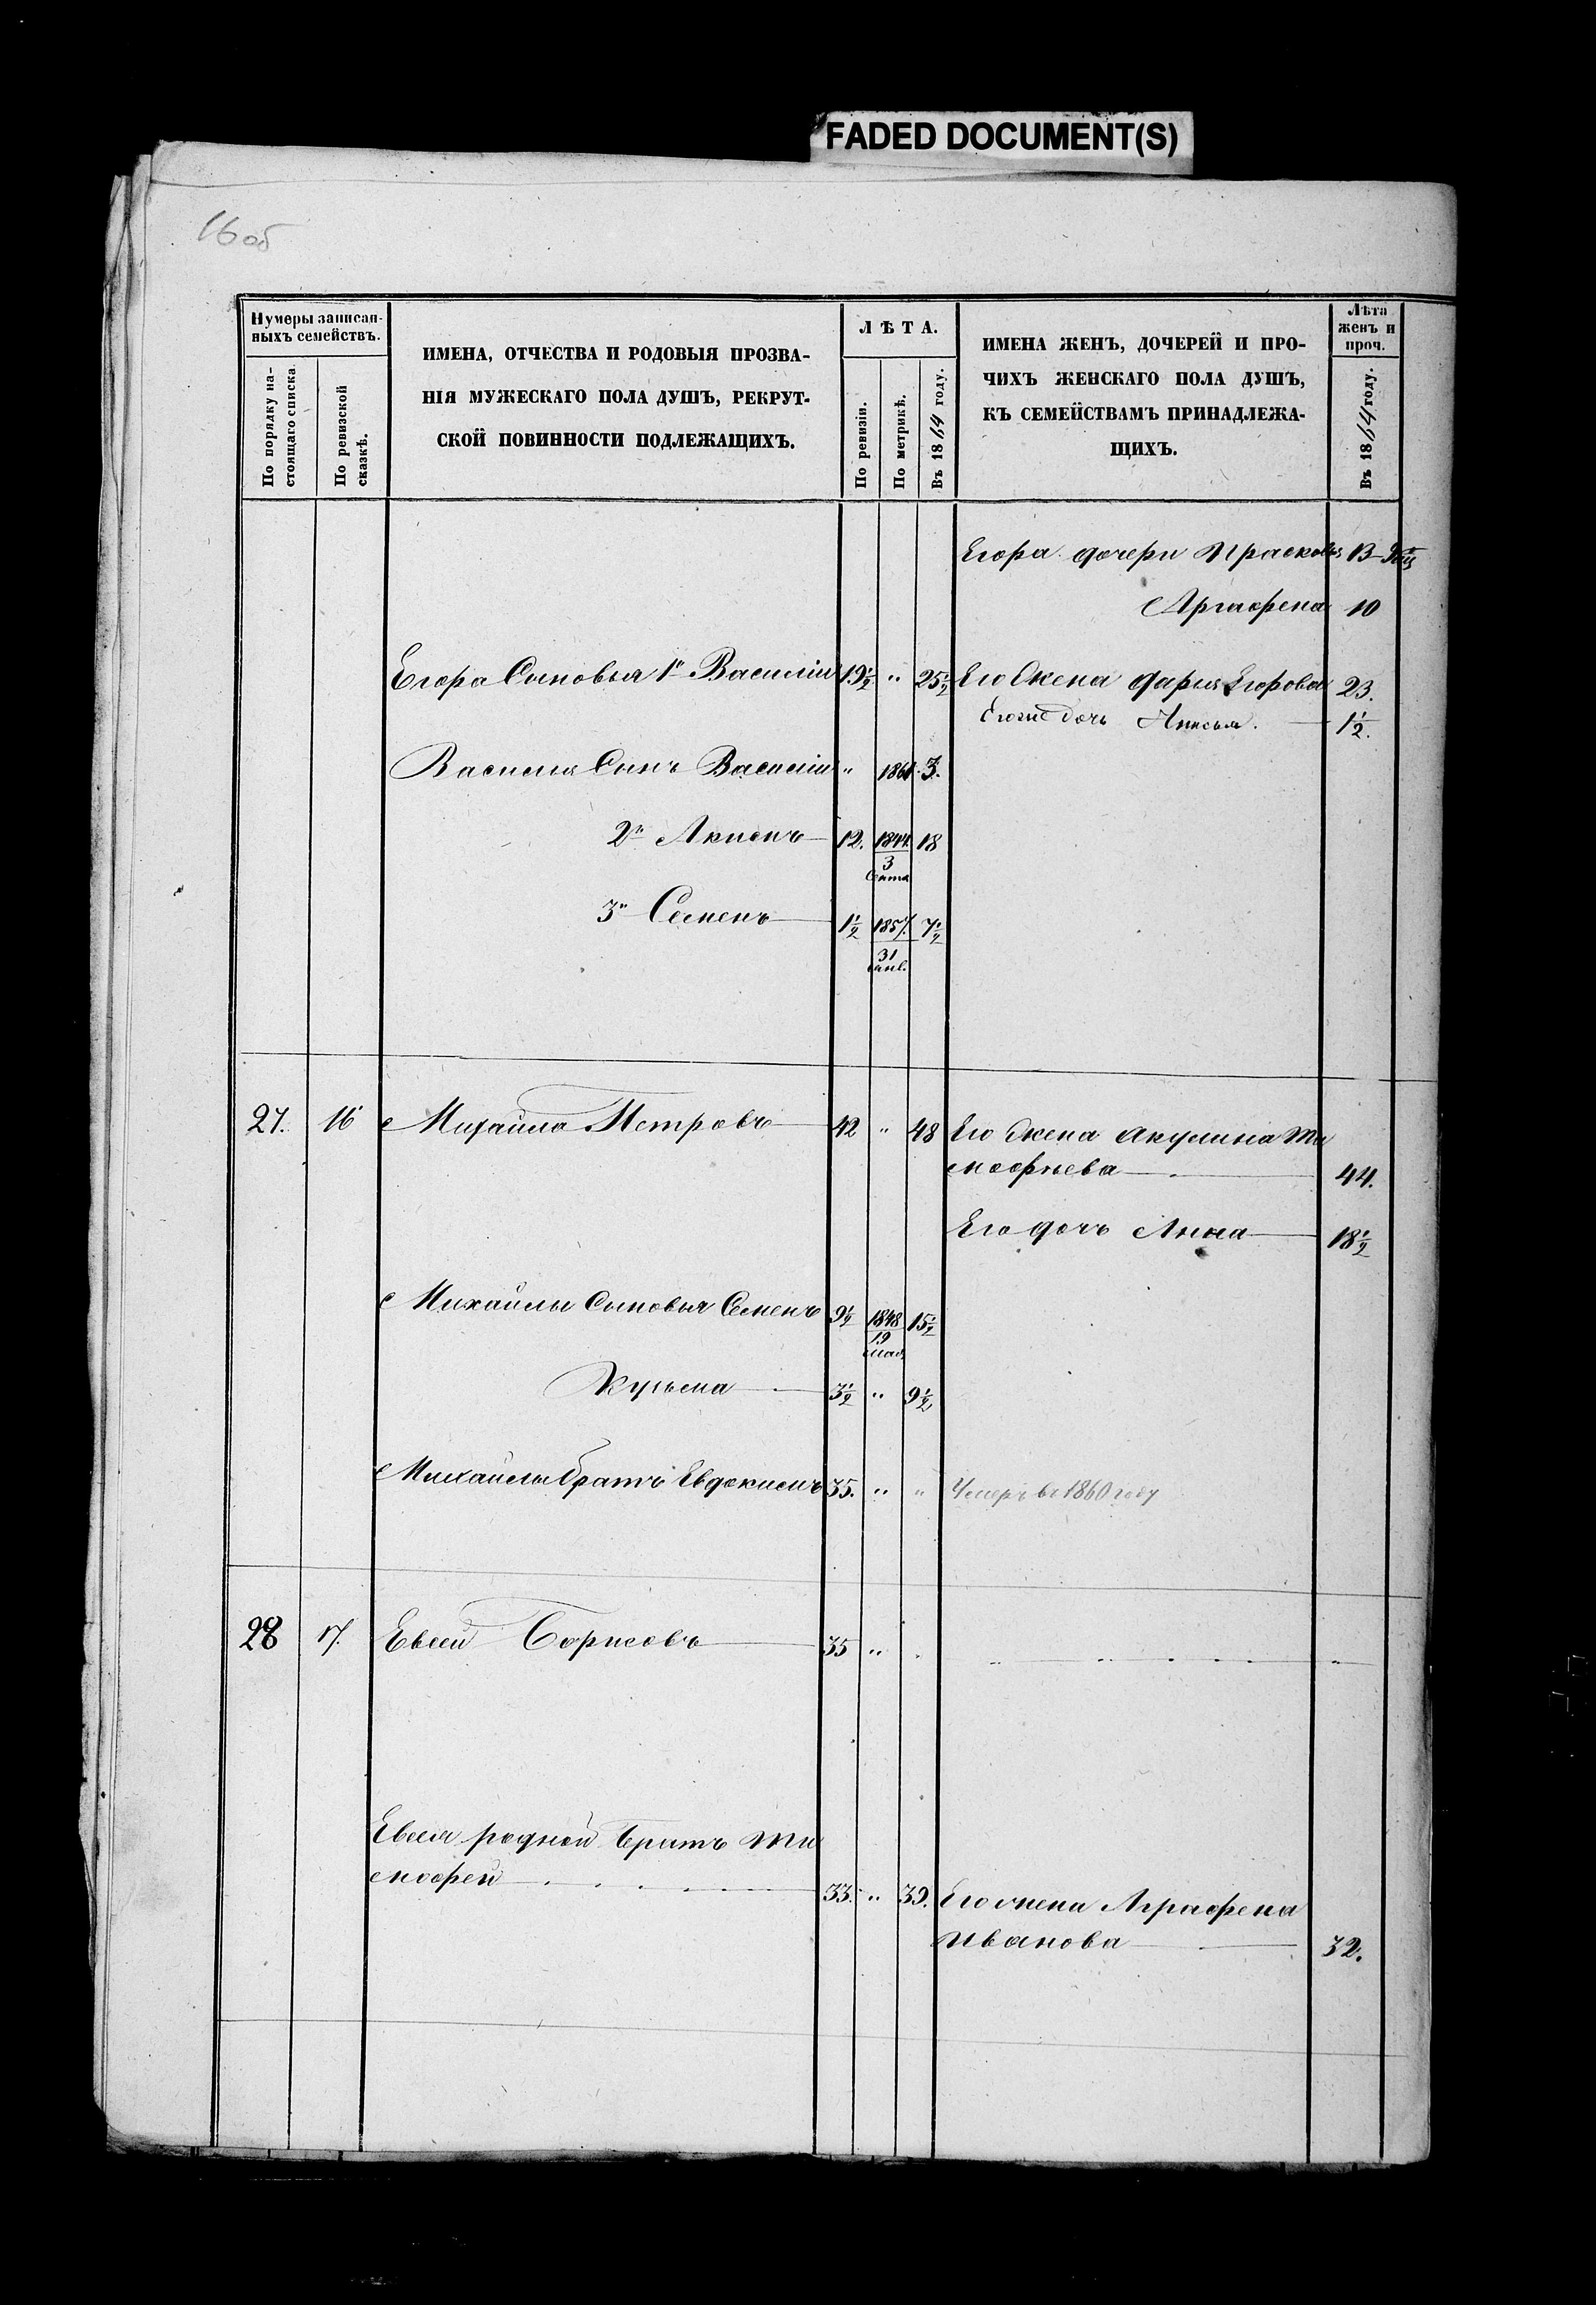 FADED DOCUMENT(S)
16 об
Нумеры записан-
ныхъ семействъ.
По порядку на-
стоящаго списка.
По ревизской
сказкѣ.
ИМЕНА, ОТЧЕСТВА И РОДОВЫЯ ПРОЗВА-
НІЯ МУЖЕСКАГО ПОЛА ДУШЪ, РЕКРУТ-
СКОЙ ПОВИННОСТИ ПОДЛЕЖАЩИХЪ.
ЛѢТА.
По ревизіи.
По метрикѣ.
Въ 1864 году.
ИМЕНА ЖЕНЪ, ДОЧЕРЕЙ И ПРО-
ЧИХЪ ЖЕНСКАГО ПОЛА ДУШЪ,
КЪ СЕМЕЙСТВАМЪ ПРИНАДЛЕЖА-
ЩИХЪ.
Лѣта
женъ и
проч.
Въ 1864 году.
Егора дочери Прасковья 13
Аграфена 10
Егора Сыновья 1й Василій 19½ " 25½ Его Жена Дарья Егорова 23.
Его же дочь Анисья. 1½.
Василія Сынъ Василій " 1861 3.
2й Акимъ 12. 1844. 18
3
Сента
3й Семенъ 1½ 1857. 7½
31
Янв.
27. 16 Михайло Петровъ 42 " 48 Его Жена Акулина Ти
мофѣева 44.
Его дочь Анна 18½
Михайлы Сыновья Семенъ 9½ 1848 15½
19
Мая
Кузьма 3½ " 9½
Михайлы братъ Евдокимъ 35. " " Умеръ въ 1860 году
28 17. Евсей Борисовъ 35 "
Евсея родной братъ Ти
мофей 33. " 39. Его жена Аграфена
Иванова 32.